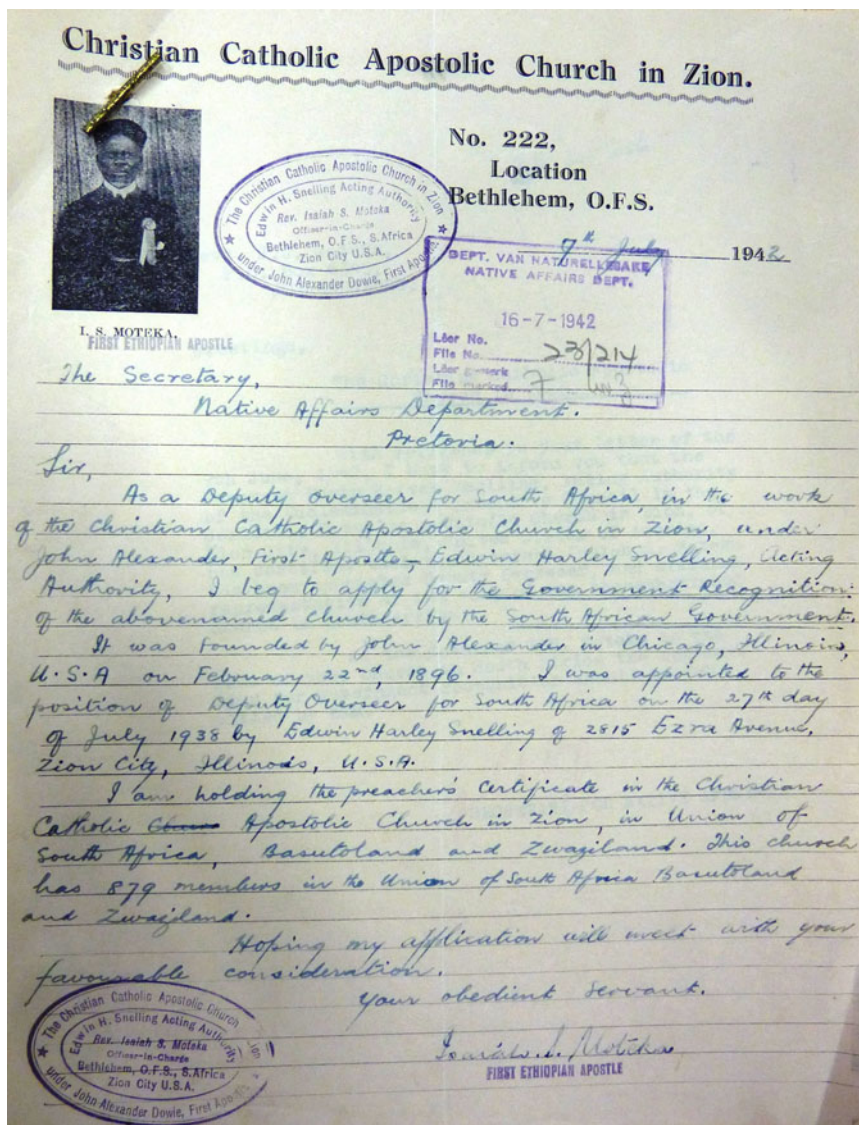 Christian Catholic Apostolic Church in Zion.
No. 222,
Location
Bethlehem, O.F.S.
The Christian Catholic Apostolic Church in Zion
Edwin H. Snelling Acting Authority
Rev. Isaiah S. Moteka
Officer-in-Charge
Bethlehem, O.F.S., S.Africa
Zion City U.S.A.
under John Alexander Dowie, First Apostle
7th July 1942
DEPT. VAN NATURELLESAKE
NATIVE AFFAIRS DEPT.
16-7-1942
Lêer No.
File No. 23/214
Lêer gemerk
File marked 7
I. S. MOTEKA,
FIRST ETHIOPIAN APOSTLE
The Secretary,
Native Affairs Department.
Pretoria.
Sir,
As a Deputy Overseer for South Africa, in the work
of the Christian Catholic Apostolic Church in Zion, under
John Alexander, First Apostle – Edwin Harley Snelling, Acting
Authority, I beg to apply for the Government Recognition
of the abovenamed church by the South African Government.
It was founded by John Alexander in Chicago, Illinois,
U.S.A on February 22nd, 1896. I was appointed to the
position of Deputy Overseer for South Africa on the 27th day
of July 1938 by Edwin Harley Snelling of 2815 Ezra Avenue,
Zion City, Illinois, U.S.A.
I am holding the preacher's Certificate in the Christian
Catholic Apostolic Church in Zion, in Union of
South Africa, Basutoland and Zwaziland. This church
has 879 members in the Union of South Africa Basutoland
and Zwaziland.
Hoping my application will meet with your
favourable consideration.
Your obedient servant.
Isaiah S. Moteka
FIRST ETHIOPIAN APOSTLE
The Christian Catholic Apostolic Church in Zion
Edwin H. Snelling Acting Authority
Rev. Isaiah S. Moteka
Officer-in-Charge
Bethlehem, O.F.S., S.Africa
Zion City U.S.A.
under John Alexander Dowie, First Apostle